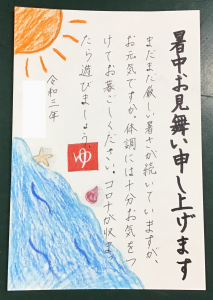 暑中お見舞い申し上げます
まだまだ厳しい暑さが続いていますが、
お元気ですか。体調には十分お気をつ
けてお暮ごしください。コロナが収まっ
たら遊びましょう。
令和三年
ゆ